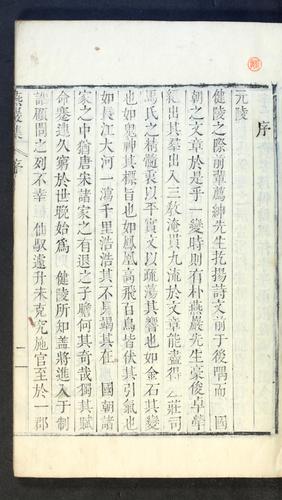 序
元陵
健陵之際前輩薦紳先生扢揚詩文前于後喁而 國
朝之文章於是乎一變時則有朴燕巖先生豪俊卓犖
超出其羣出入三敎淹貫九流於文章能盡 莊司
馬氏之精髓夷以平實文以疏蕩其響也如金石其變
也如鬼神其標旨也如鳳凰高飛百鳥皆伏其引氣也
如長江大河一瀉千里浩浩其不見竭其在 國朝諸
家之中猶唐宋諸家之有退之子瞻何其奇哉獨其賦
命蹇連久窮於世晩始爲 健陵所知盖將進入于制
誥顧問之列不幸 仙馭遠升未克究施官至於一郡
燕巖集 序 一